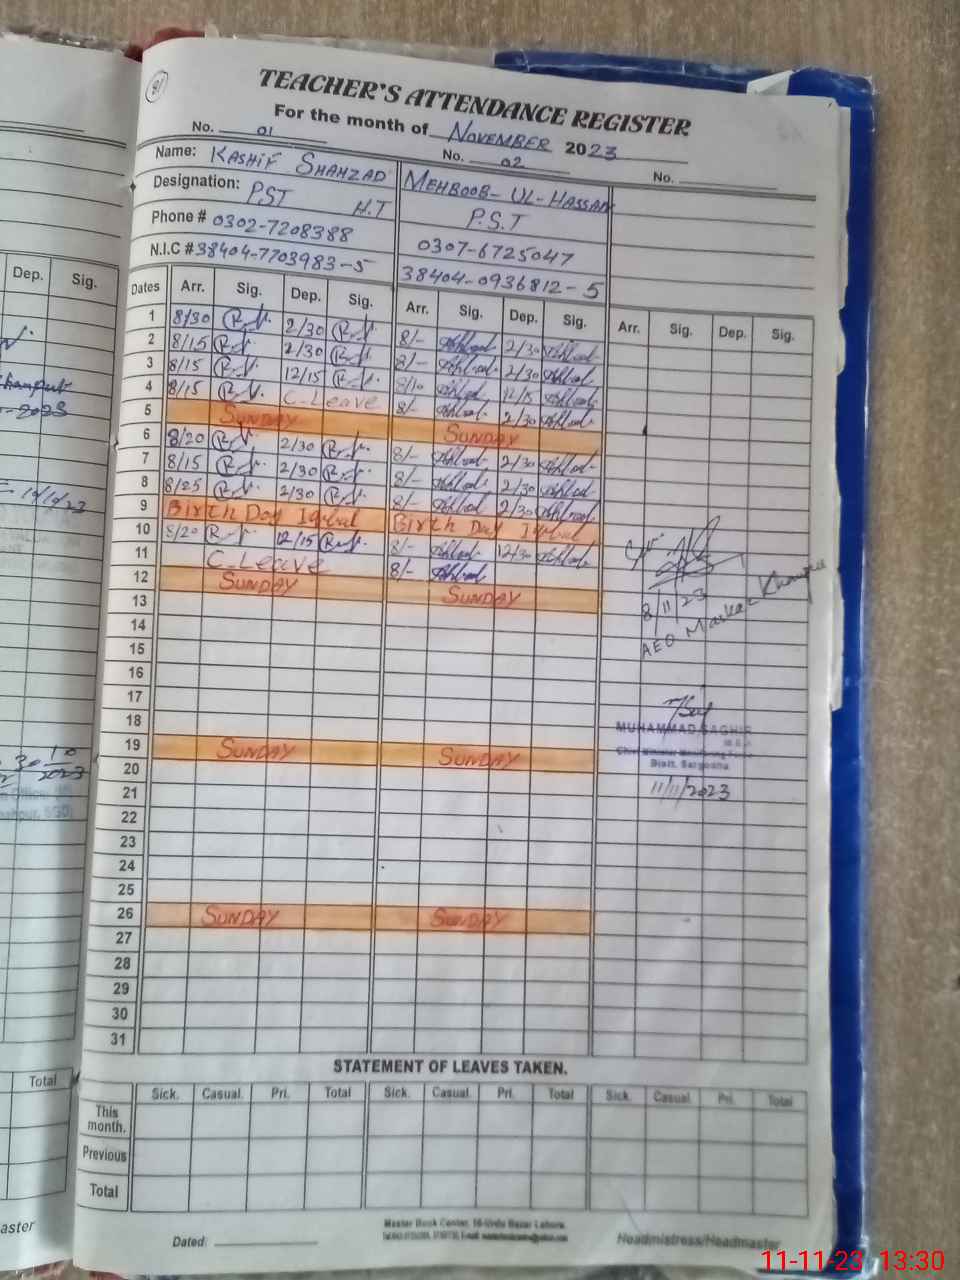 91
TEACHER'S ATTENDANCE REGISTER
For the month of NOVEMBER 2023
No. 01 No. 02 No.
Name: KASHIF SHAHZAD MEHBOOB-UL-HASSAN
Designation: PST H.T P.S.T
Phone # 0302-7208388 0307-6725047
N.I.C # 38404-7703983-5 38404-0936812-5
Dep. Sig.
Dates Arr. Sig. Dep. Sig. Arr. Sig. Dep. Sig. Arr. Sig. Dep. Sig.
1 8/30 2/30 8/- 2/30
2 8/15 2/30 8/- 2/30
3 8/15 12/15 8/10 12/15
4 8/15 C.Leave 8/- 2/30
5 SUNDAY SUNDAY
6 8/20 2/30 8/- 2/30
7 8/15 2/30 8/- 2/30
8 8/25 2/30 8/- 2/30
9 Birth Day Iqbal Birth Day Iqbal
10 8/20 12/15 8/- 12/30
11 C.Leave 8/-
12 SUNDAY SUNDAY
13
8/11/23
AEO Markaz
14
15
16
17
18
MUHAMMAD SAGHIR
19 SUNDAY SUNDAY
Distt. Sargodha
20
21 11/11/2023
22
23
24
25
26 SUNDAY SUNDAY
27
28
29
30
31
STATEMENT OF LEAVES TAKEN.
Total Sick. Casual. Pri. Total Sick. Casual. Pri. Total Sick. Casual. Pri. Total
This month.
Previous
Total
Master Book Center, 16-Urdu Bazar Lahore.
Dated: Headmistress/Headmaster
11-11-23 13:30